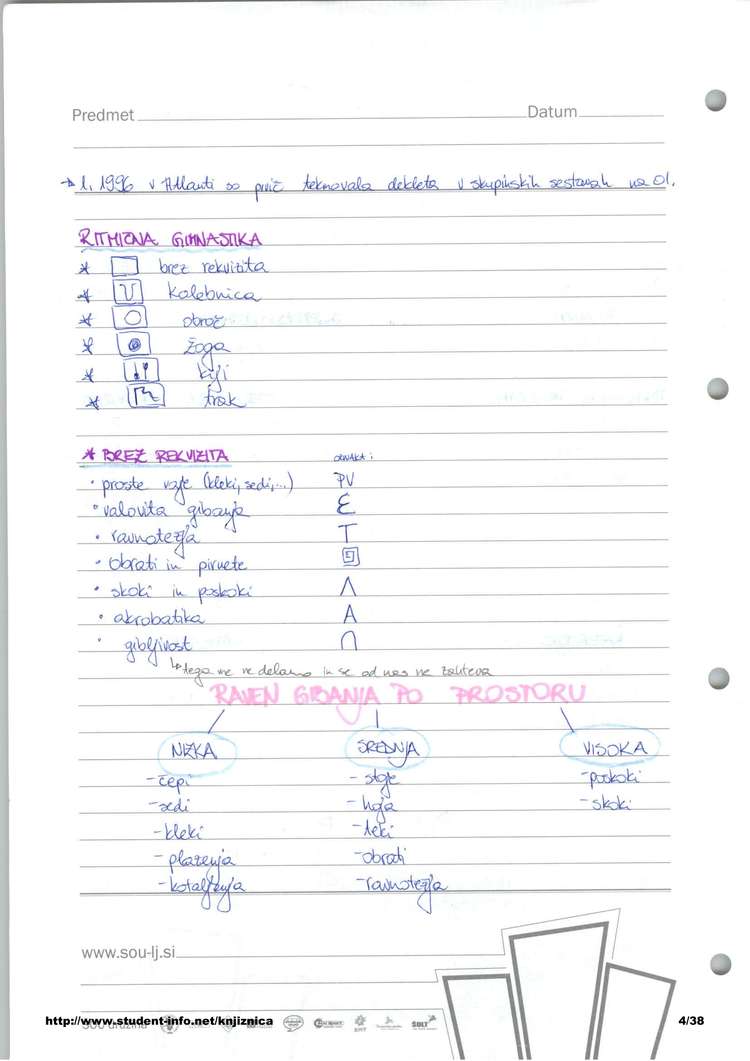 Predmet Datum
→ l. 1996 v Atlanti so prvič tekmovala dekleta v skupinskih sestavah na OI.
RITMIČNA GIMNASTIKA
* brez rekvizita
* kolebnica
* obroč
* žoga
* kiji
* trak
* BREZ REKVIZITA OZNAKA:
• proste vaje (kleki, sedi,...) PV
• valovita gibanja
• ravnotežja T
• obrati in piruete
• skoki in poskoki Λ
• akrobatika A
• gibljivost ∩
↳ tega me ne delamo in se od nas ne zahteva
RAVEN GIBANJA PO PROSTORU
NIZKA SREDNJA VISOKA
- čepi - stoje - poskoki
- sedi - hoja - skoki
- kleki - teki
- plazenja - obrati
- kotaljenja - ravnotežja
www.sou-lj.si
http://www.student-info.net/knjiznica 4/38
SOU družina ŠOLT